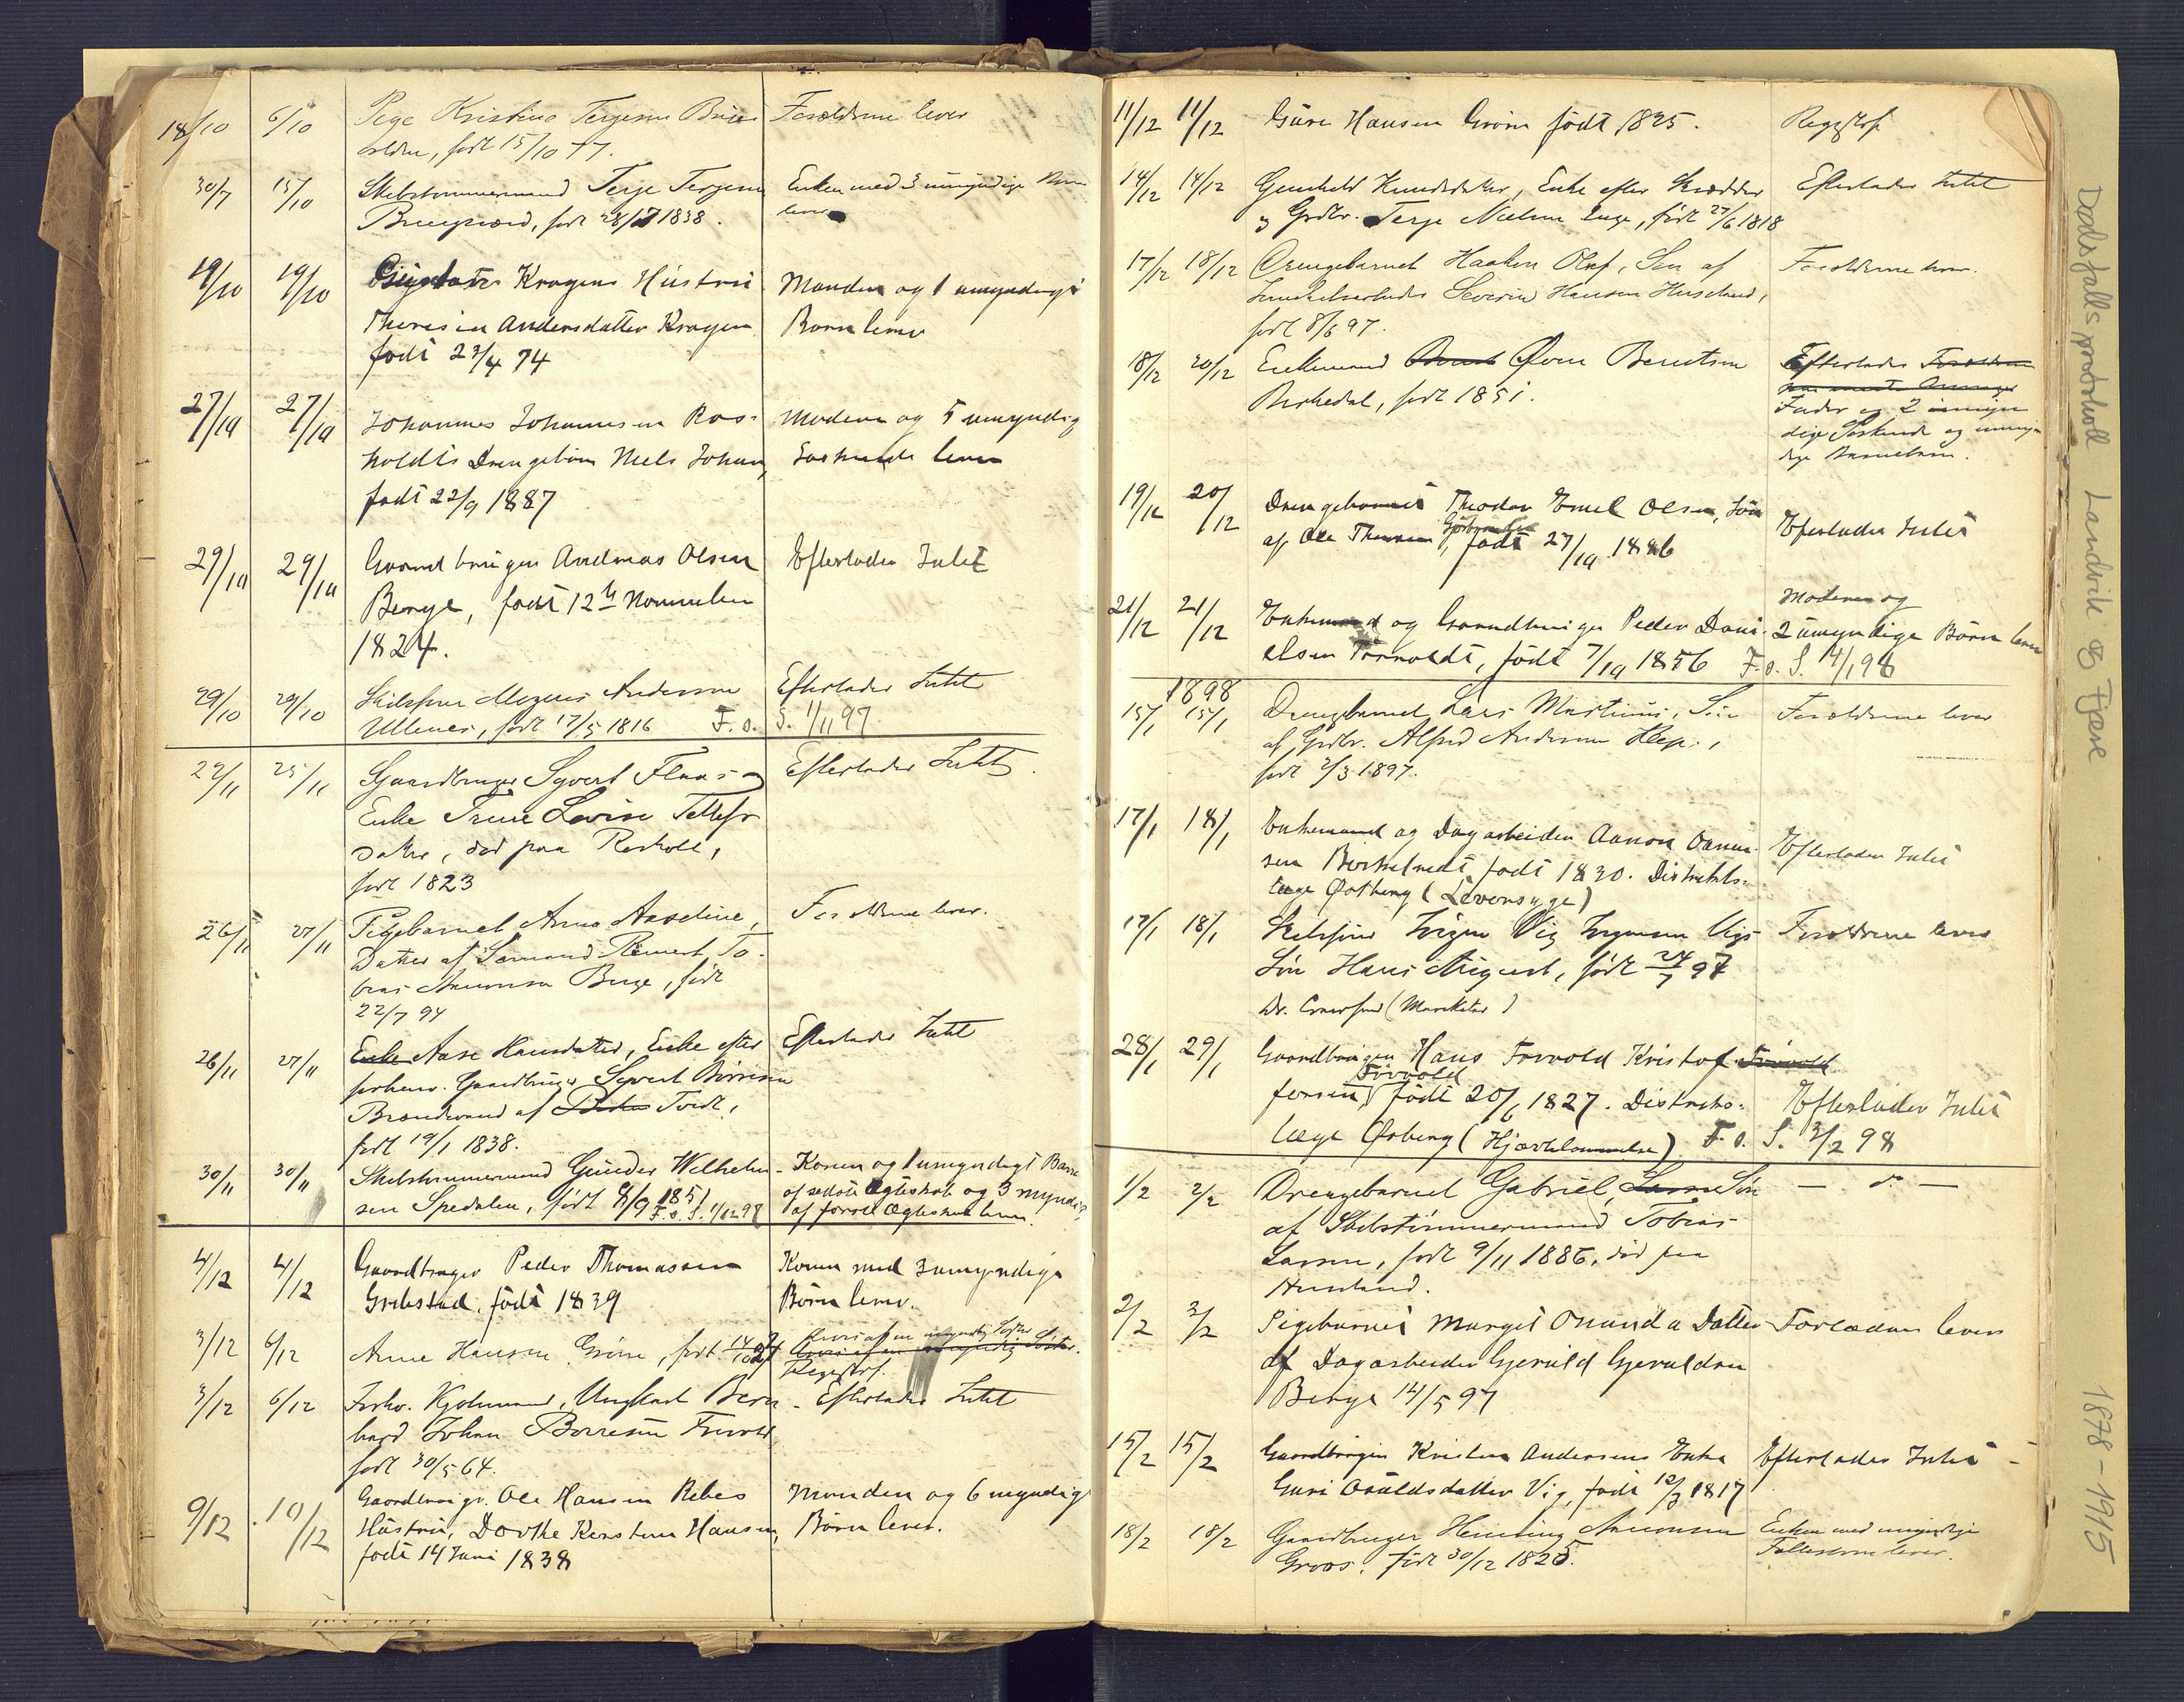 18/10 6/10 Pige Kristine Terjesen
født 15/10 77.
Forældrene lever
30/7 15/10 Skibstømmermand Terje Terjesen
født 28/7 1838.
Enken med 3 umyndige Børn
lever
19/10 19/10 Kragens Hustru
Theresia Andersdatter Kragen
født 23/4 74
Manden og 1 umyndigt
Barn lever
27/10 27/10 Johannes Johannesen Ros-
holdts Drengebarn Niels Johan,
født 22/9 1887
Moderen og 5 umyndig
Søskende lever
29/10 29/10 Gaardbruger Andreas Olsen
Berge, født 12te November
1824.
Efterlader Intet
29/10 29/10 Skibsfører Mogens Andersen
Ullenes, født 17/5 1816 F. o. S. 1/11 97
Efterlader Intet
22/11 25/11 Gaardbruger Syvert Flaa's
Enke Trine Lovise Tellefs-
datter, død paa Rosholt,
født 1823
Efterlader Intet
26/11 27/11 Pigebarnet Anna Aaseline,
Datter af Sømand Reinert To-
bias Berge, født
22/7 94
Forældrene lever.
26/11 27/11 Enke Aase Hansdatter, Enke efter
forhenv. Gaardbruger Syvert Børresen
af Tveit,
født 19/1 1838.
Efterlader Intet
30/11 30/11 Skibstømmermand Gunder Wilhelm-
sen Spedalen, født 8/9 1851
F. o. S. 1/12 97
Konen og 1 umyndigt Barn
af sidste Ægteskab og 3 myndige
af første Ægteskab lever.
4/12 4/12 Gaardbruger Peder Thomassen
Grebstad, født 1839
Konen med 3 umyndige
Børn lever.
3/12 6/12 Anne Hansen Grøm, født 14/10 27
Arvis af en umyndig Søster
Arvis af en umyndig Søster.
Regisstrf.
3/12 6/12 Forhv. Ungkarl Bern-
hard Johan Børresen
født 30/5 64.
Efterlader Intet
9/12 10/12 Gaardbrugr. Ole Hansen Rebes
Hustru, Dorthe Kirstine Hansen,
født 14 Juni 1838
Manden og 6 myndig
Børn lever.
11/12 11/12 Guro Hansen Grøm født 1825.
Regisstrf
14/12 14/12 Gunhild Knudsdatter, Enke efter Skrædder
og Grdbr. Terje Nielsen Enge, født 27/6 1818
Efterlader Intet
17/12 18/12 Drengebarnet Haakon Olaf, Søn af
Severin Hansen
født 8/6 97.
Forældrene lever.
18/12 20/12 Enkemand Øven Berntsen
Birkedal, født 1851.
Efterlader Forældre
Fader og 2 umyn-
dige Søskende og umyn-
dige Barnebarn.
19/12 20/12 Drengebarnet Theodor Emil Olsen, Søn
af Ole født 27/10 1886
Efterlader Intet
21/12 21/12 Enkemand og Gaardbruger Peder Dani-
elsen Torvoldt, født 7/10 1856 F. o. S. 4/1 98
Moderen og
2 umyndige Børn lever
1898
15/1 15/1 Drengebarnet Lars Martinius, Søn
af Grdbr. Alfred Andersen
født 2/3 1897.
Forældrene lever
17/1 18/1 Enkemand og Dagarbeider Aanon Aanon-
sen født 1830. Distrikts-
læge Østberg (Leversyge)
Efterlader Intet
17/1 18/1 Skibsfører Vig
Søn Hans August, født 24/7 97
Dr. (Mavekatar)
Forældrene lever
28/1 29/1 Gaardbrugeren Hans Torvold Kristof
fersen Torvold født 20/6 1827. Distrikts-
læge Østberg (Hjertelammelse) F. o. S. 3/2 98
Efterlader Intet
1/2 2/2 Drengebarnet Gabriel, Søn
af Skibstømmermand Tobias
Larsen, født 9/11 1886, død paa
— do —
2/2 3/2 Pigebarnet Margit Omanda Datter
af Dagarbeider Gjeruld Gjeruldsen
Berge 14/5 97
Forældrene lever
15/2 15/2 Gaardbrugeren Kristen Andersens Enke
Guri Osuldsdatter Vig, født 12/3 1817
Efterlader Intet
18/2 18/2 Gaardbruger Henning Aanonsen
Groos, født 30/12 1825.
Enken med myndige
Fællesbørn lever.
Dødsfallsprotokoll Landvik og Fjære 1878-1915